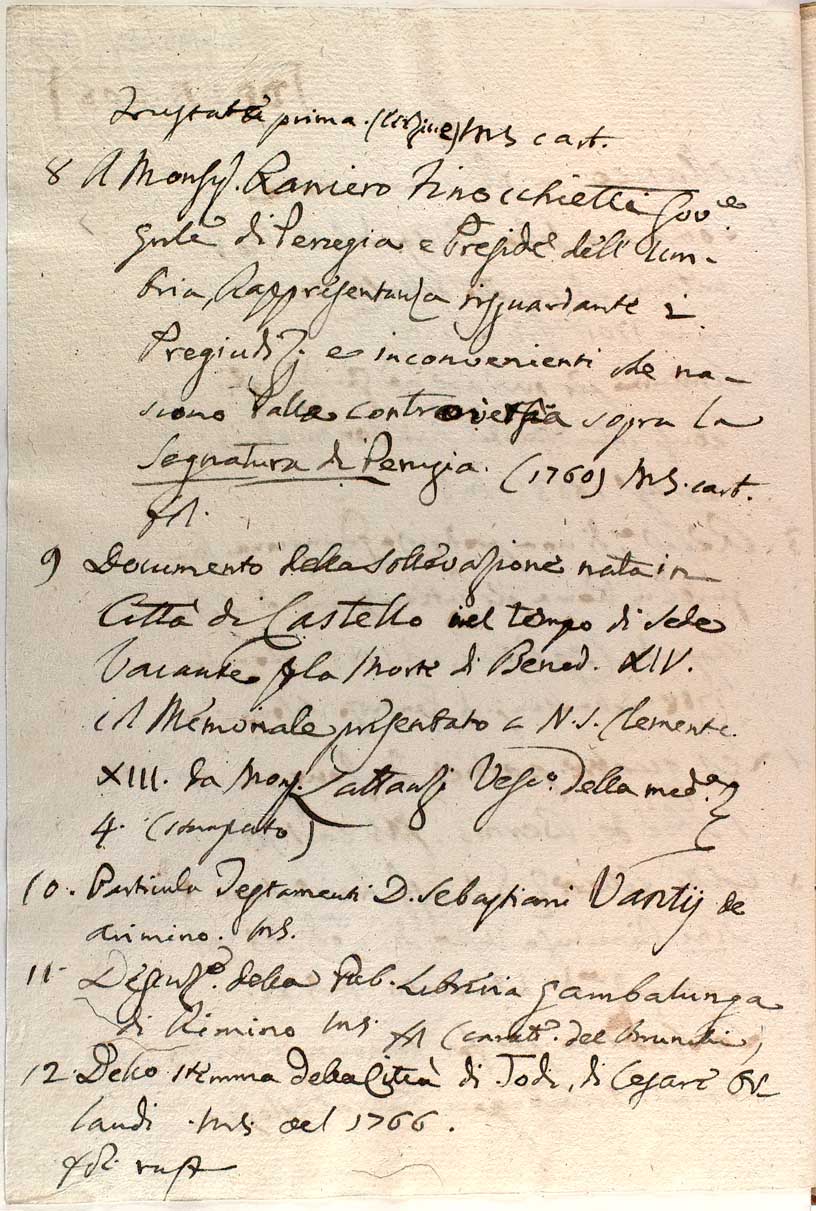 prima. MS cart.
8 A Monsig. Raniero Finocchietti Gov.re
gnle di Perugia e Preside dell' Um-
bria, Rappresentanza risguardante i
Pregiudiz. e inconvenienti che na-
scono dalla controversia sopra la
Segnatura di Perugia. (1760) MS. cart.
fol.
9 Documento della sollevazione nata in
Città di Castello nel tempo di Sede
Vacante p la Morte di Bened. XIV.
Memoriale presentato a N. S. Clemente
XIII. da Mons. Lattanzi Vesc.o della med.a
4. (stampato)
10. Particula Testamenti D. Sebastiani Vantij de
Arimino. MS.
11 Descriz.e della Pub. Libreria Gambalunga
di Rimino MS. fol (caratt.e del Brunelli)
12. Dello stemma della Città di Todi, di Cesare Or-
landi MS. del 1766.
fol.